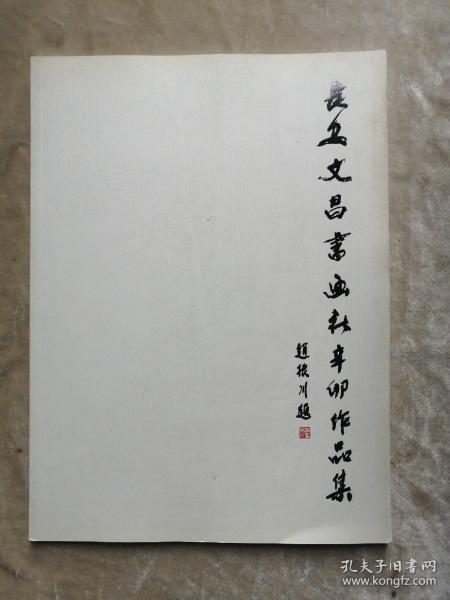 長安文昌書画社辛卯作品集
趙振川題
孔夫子旧书网
www.kongfz.com